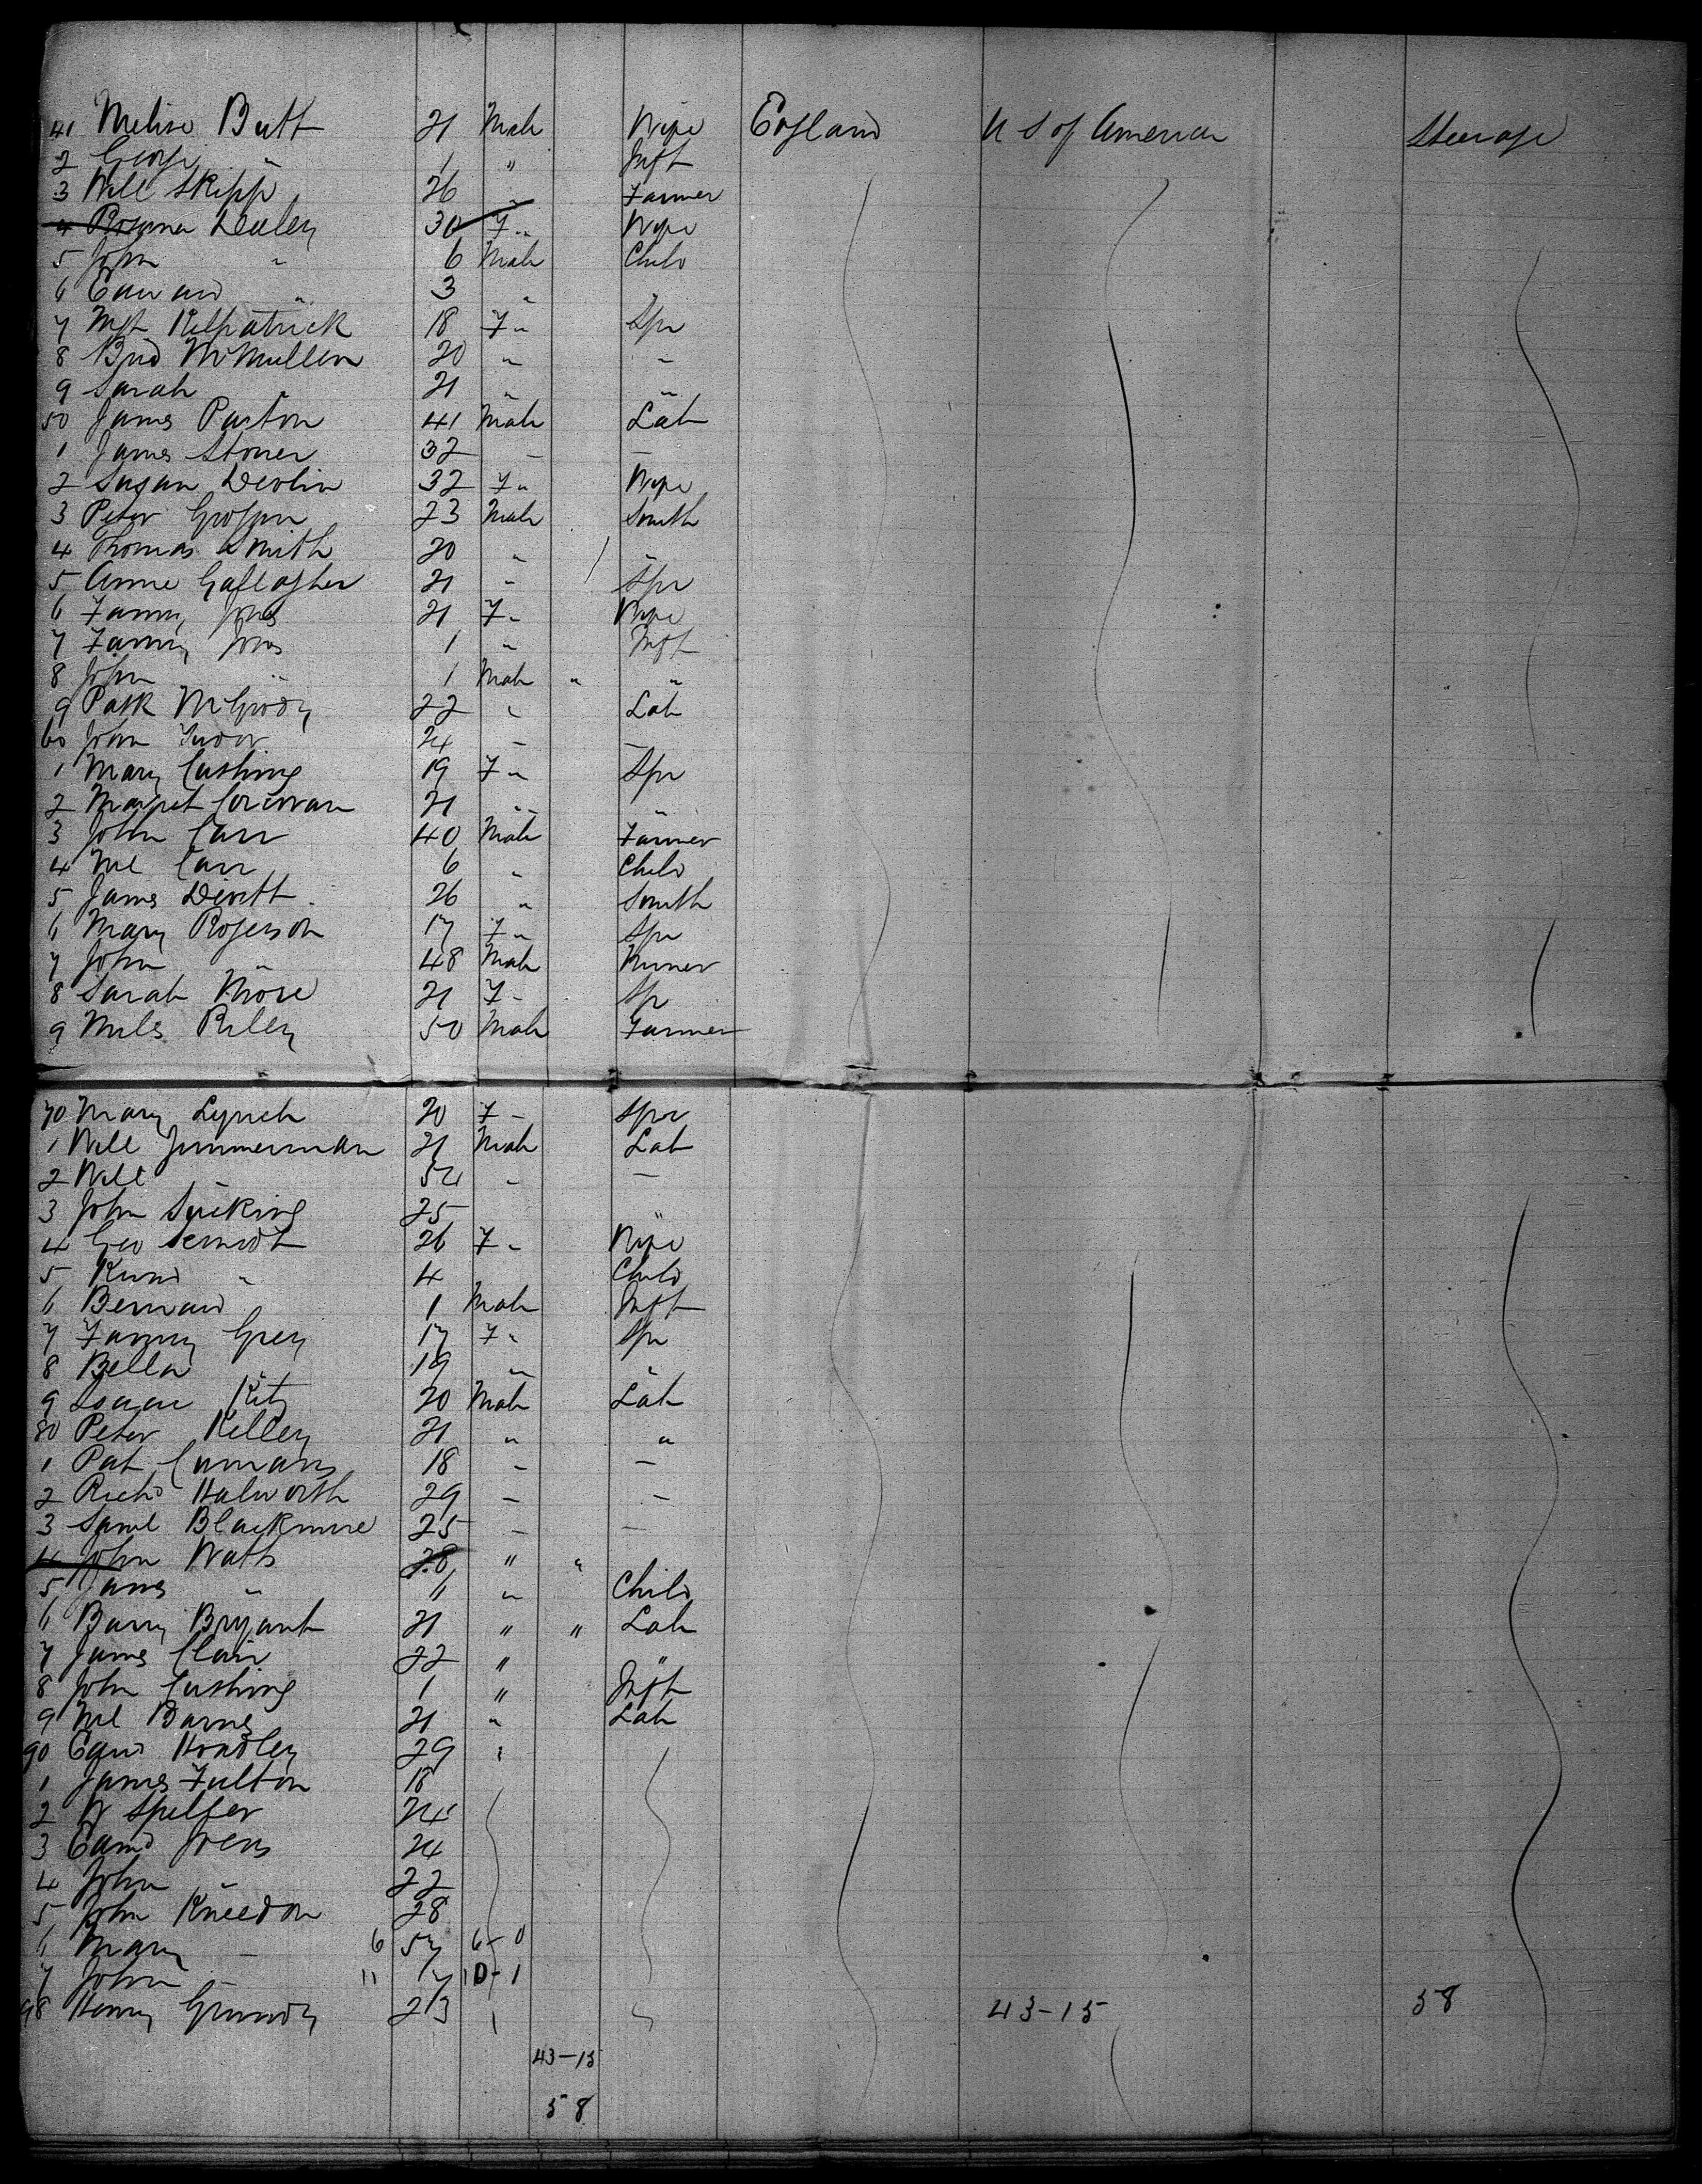 41 Melise Butt 21 Male Wife England U S of America Steerage
2 George " 1 " Inft
3 Will Skipp 26 " Farmer
4 Rosanna Dealey 30 F " Wife
5 John " 6 Male Child
6 Edward " 3 " "
7 Mgt Kilpatrick 18 F " Spr
8 Brid McMullen 20 " "
9 Sarah " 21 " "
50 James Parton 41 Male Lab
1 James Stoner 32 " "
2 Susan Devlin 32 F " Wife
3 Peter 23 Male Smith
4 Thomas Smith 20 " "
5 Anne Gallagher 21 " Spr
6 Fanny Jones 21 F " Wife
7 Fanny Jones 1 " Inft
8 John " 1 Male " "
9 Patk McGrody 22 " Lab
60 John Tudor 24 " "
1 Mary Cushing 19 F " Spr
2 Margret Corcoran 21 " "
3 John Carr 40 Male Farmer
4 Ml Carr 6 " Child
5 James Devitt 26 " Smith
6 Mary Rogerson 17 F " Spr
7 John " 48 Male Miner
8 Sarah More 21 F " Sp
9 Miles Riley 50 Male Farmer
70 Mary Lynch 20 F " Spr
1 Will Zimmerman 21 Male Lab
2 Will " 54 " "
3 John 25 "
4 Geo Schmidt 26 F " Wife
5 " 4 Child
6 Bernard 1 Male Inft
7 Fanny Grey 17 F " Spr
8 Bella " 19 " "
9 Isaac 20 Male Lab
80 Peter Kelley 21 " "
1 Pat 18 " "
2 Richd Halworth 29 " "
3 Saml Blackmore 25 " "
4 John Watts 28 " "
5 James " 11 " Child
6 Barry Bryant 21 " " Lab
7 James Clair 22 " "
8 John Cushing 1 " Inft
9 Ml Barnes 21 " Lab
90 Edwd Hoadley 29 "
1 James Fulton 18
2 W 24
3 Edmd 24
4 John " 22
5 John Kneedon 28
6 Mary " 6 57 6-0
7 John " 11 17 10-1
98 Henry Grundy 23 43-15 58
43-15
58